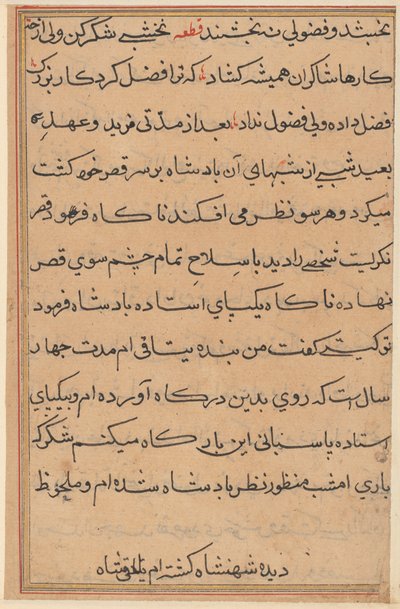 نخبشد و فضولی نه بخشند قطعه نخشبی شکر کن ولی از حق
کارها شاکران همیشه کشاد که ترا فضل کرد کار بزرگ
فضل داده ولی فضول نداد بعد از مدتی فرید و عهد
بعید شبی از شبهای آن بادشاه بر سر قصر خود کشت
میکرد و هر سو نظر می افکند ناکاه فرود قصر
نکریست شخصی را دید با سلاح تمام چشم سوی قصر
نهاده ناکاه بیکپای استاده بادشاه فرمود
تو کیستی کفت من بنده یتاقی ام مدت چهار
سال است که روی بدین درکاه آورده ام و بیکپای
استاده پاسبانی این بارکاه میکنم شکر که
باری امشب منظور نظر بادشاه شده ام و ملحوظ
دیده شهنشاه کشته ام